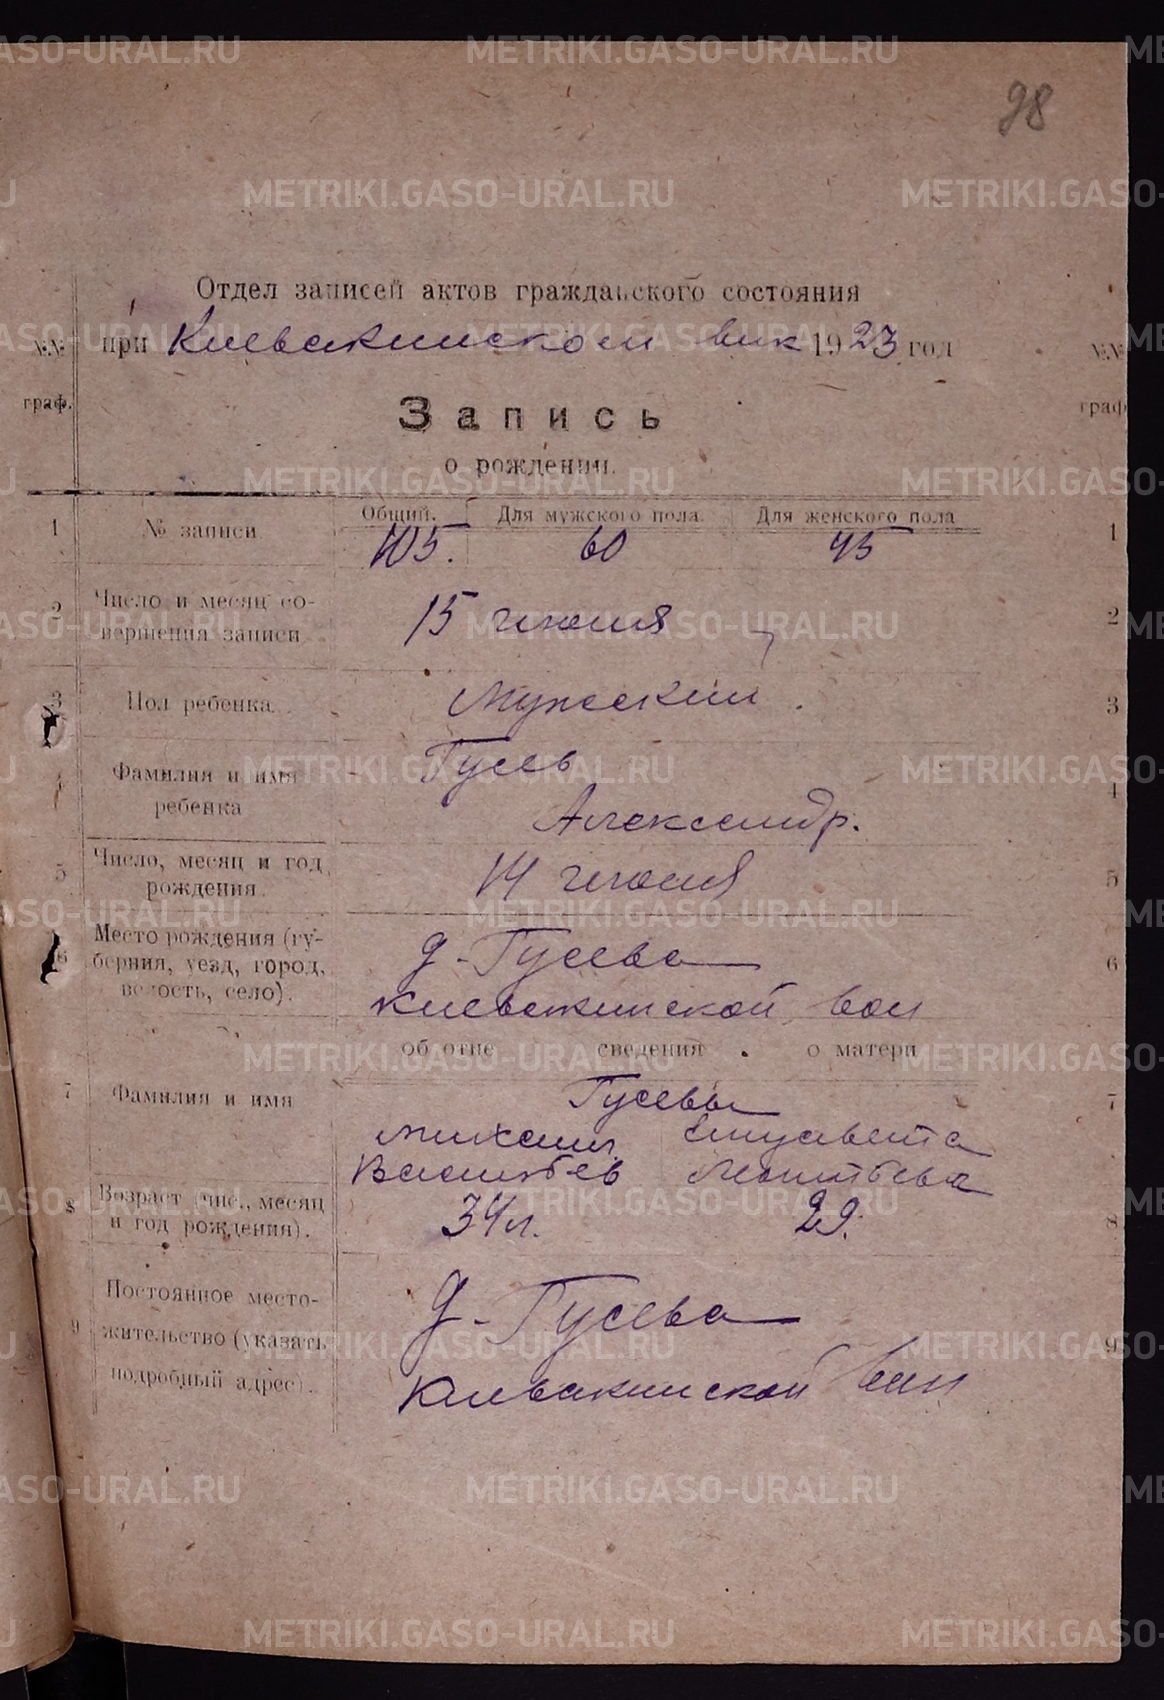 98
Отдел записей актов гражданского состояния
при Клевакинском вик 1923 год
№№ граф.
№№ граф
Запись
о рождении.
Общий. Для мужского пола Для женского пола
1 № записи 105. 60 45 1
2 Число и месяц со-
вершения записи 15 июня 2
3 Пол ребенка Мужской. 3
4 Фамилия и имя
ребенка Гусев
Александр. 4
5 Число, месяц и год
рождения. 14 июня 5
6 Место рождения (гу-
берния, уезд, город,
волость, село). д-Гусева
Клевакинской вол 6
об отце сведения о матери
7 Фамилия и имя Гусевы 7
Михаил Елизавета
Васильев Леонтьева
8 Возраст (чис., месяц
и год рождения). 34 л. 29. 8
9 Постоянное место-
жительство (указать
подробный адрес). д-Гусева
Клевакинской вол 9
METRIKI.GASO-URAL.RU